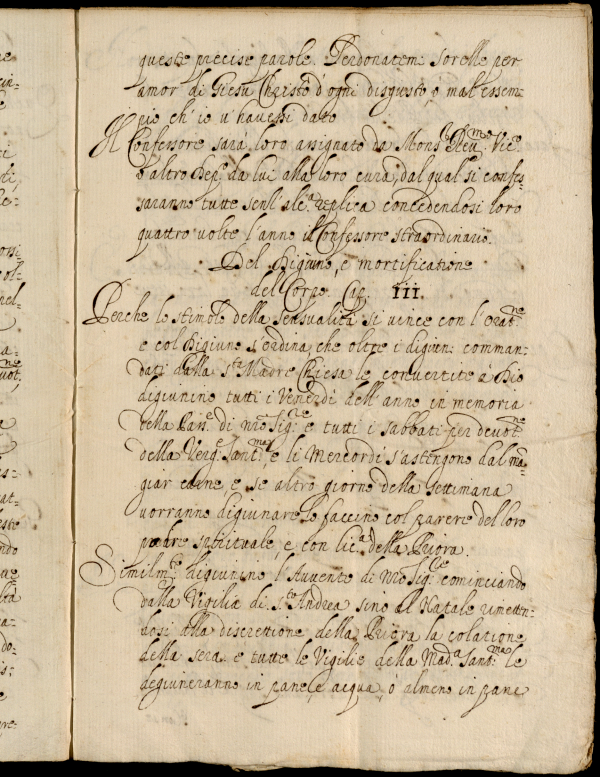 queste precise parole. Perdonatemi sorelle per
amor di Giesù Christo d'ogni disgusto, o mal' essem-
pio ch' io v' havessi dato
Il Confessore sarà loro assignato da Mons.r Reu.mo Vic.o
o altro Dep.o da lui alla loro cura, dal qual si confes-
saranno tutte senz' alc.a replica concedendosi loro
quattro volte l'anno il Confessore straordinario.
Del Digiuno, e mortificatione
del Corpo. Cap. III.
Perche lo stimolo della sensualità si vince con l'orat.ne
e col Digiuno s'ordina, che oltre i digiuni comman-
dati dalla S.ta Madre Chiesa le convertite a Dio
digiunino tutti i Venerdi dell' anno in memoria
della Pas.e di nro Sig.re e tutti i sabbati per devot.ne
della Verg.e Sant.ma, e li Mercordi s'astengono dal ma-
giar carne, e se altro giorno della settimana
vorranno digiunare lo faccino col parere del loro
padre spirituale, e con lic.a della Priora.
Similm.te digiunino l'Auvento di Nro Sig.re cominciando
dalla Vigilia di S.to Andrea sino al Natale rimetten-
dosi alla discrettione della Priora la colatione
della sera. e tutte le Vigilie della Mad.a Sant.ma le
degiuneranno in pane, e acqua, ò almeno in pane